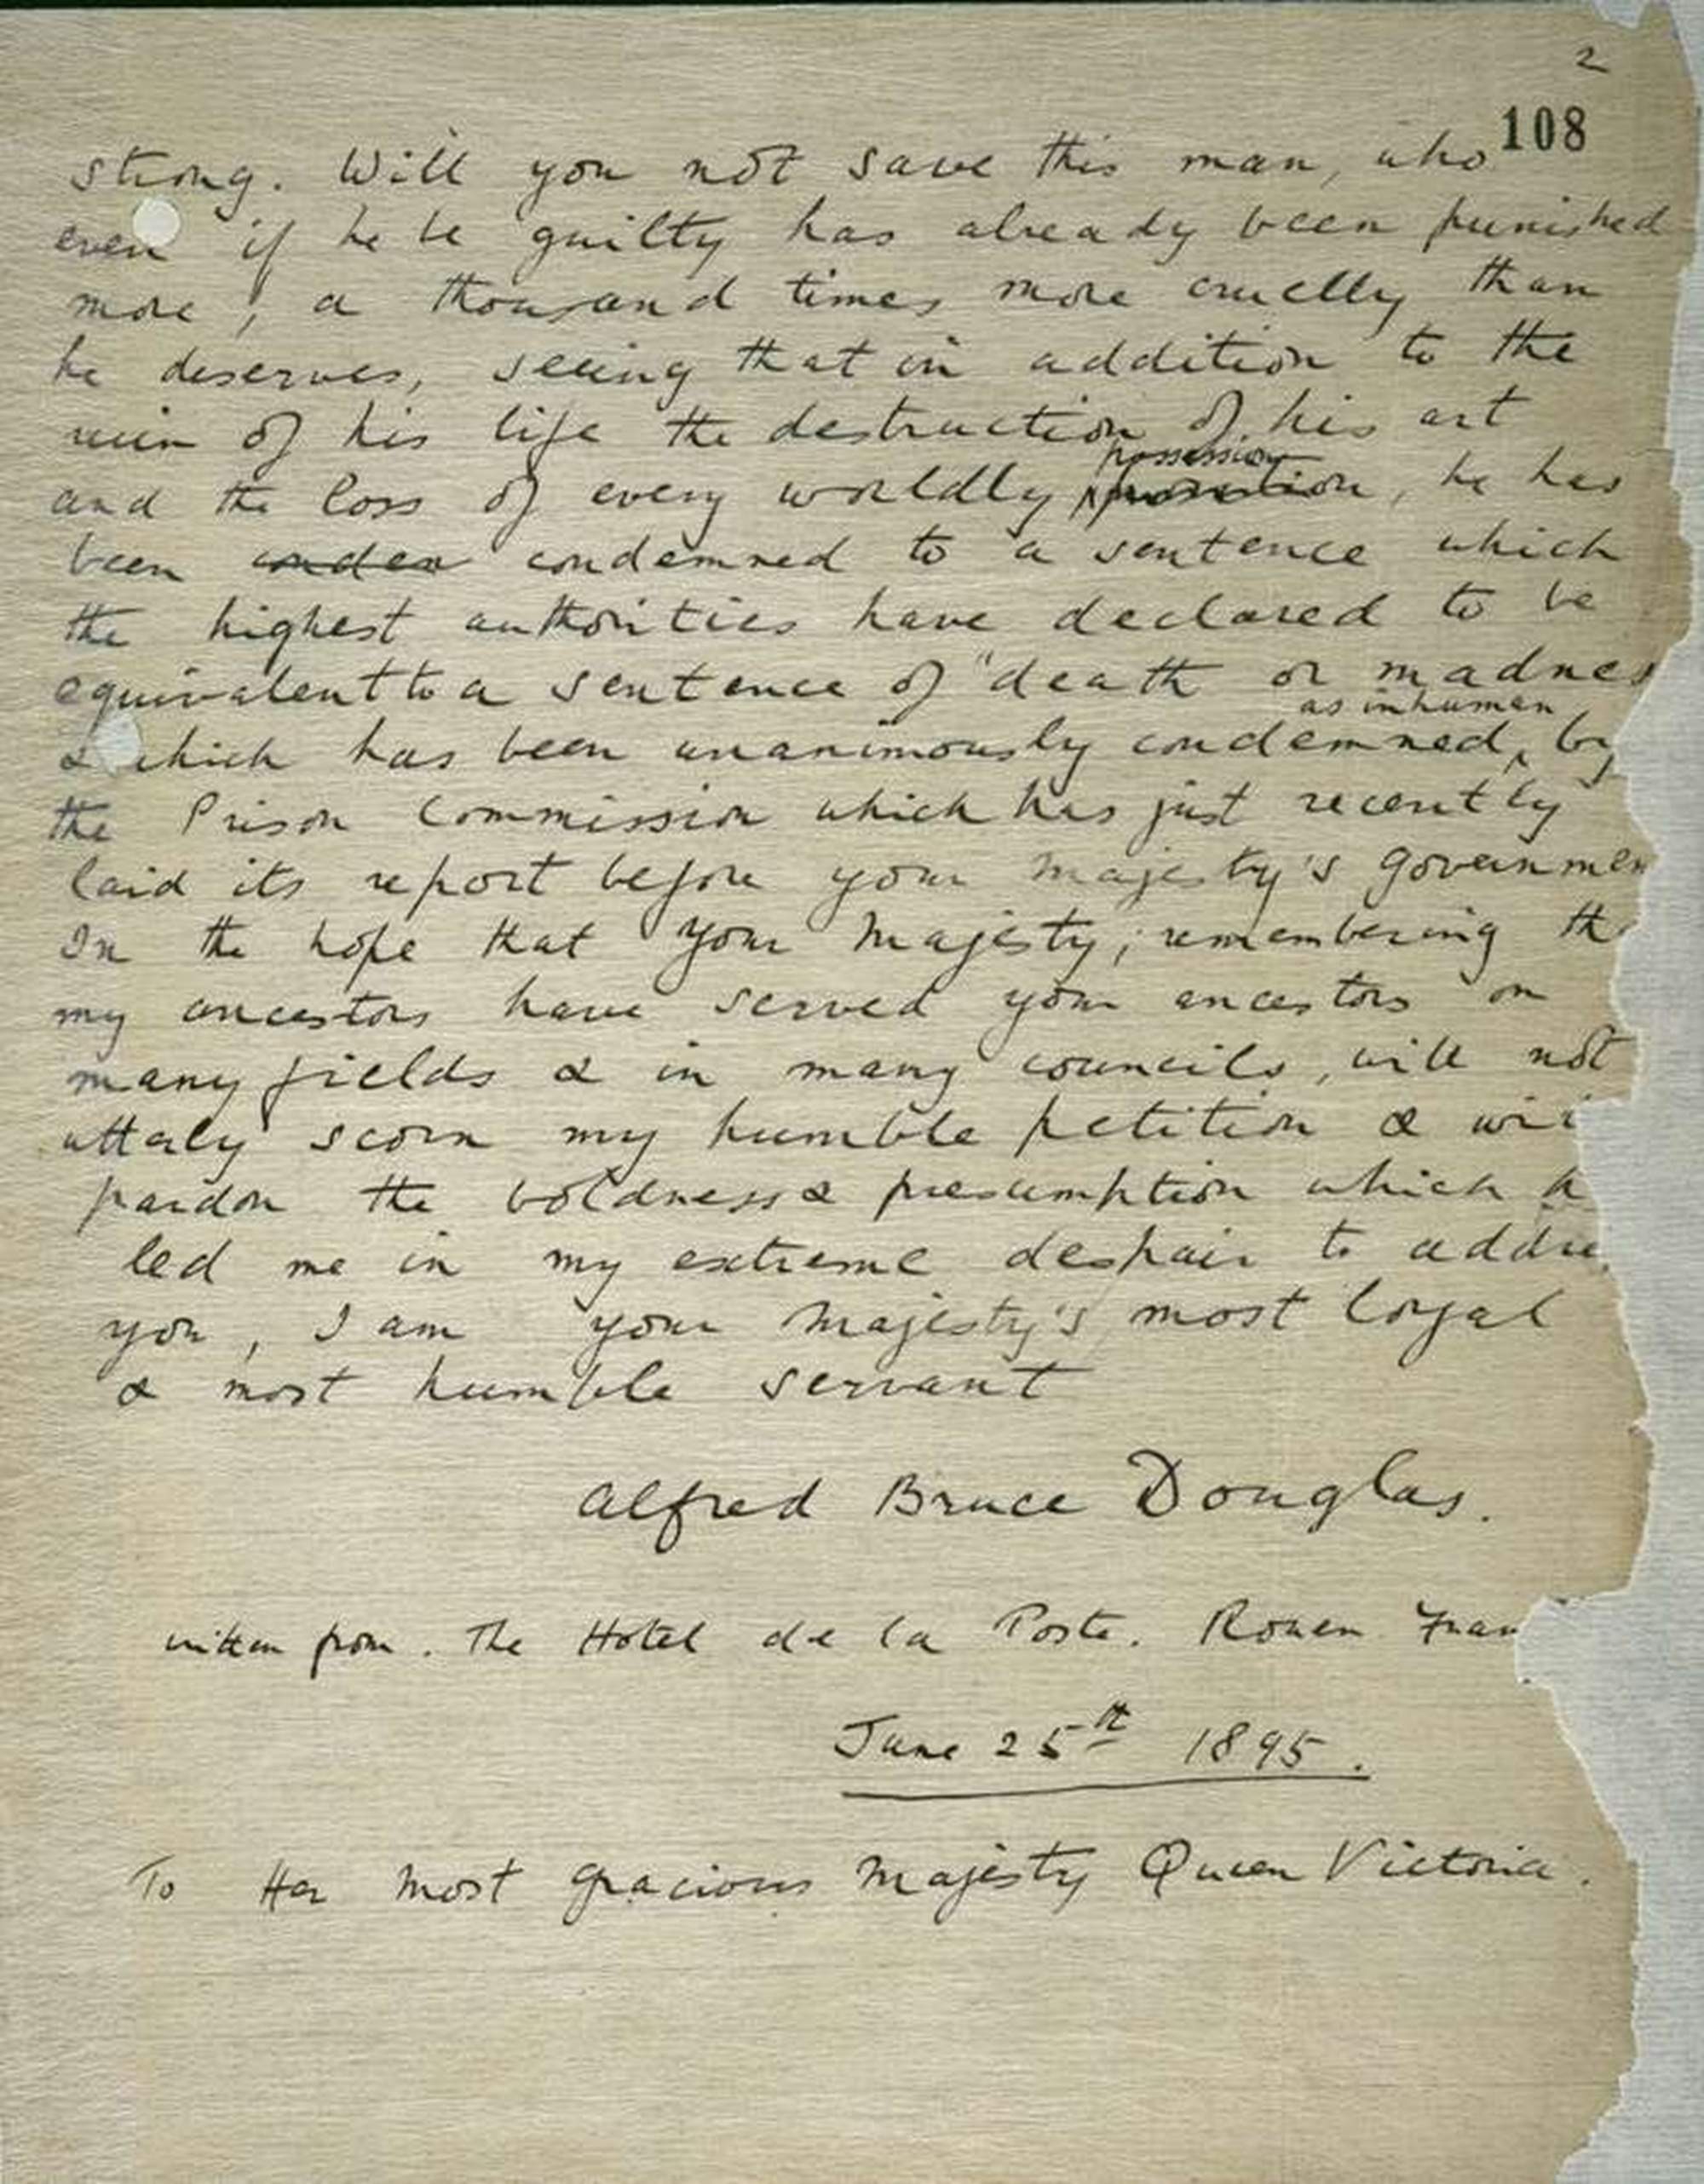 2
108
strong. Will you not save this man, who
even if he be guilty has already been punished
more, a thousand times more cruelly than
he deserves, seeing that in addition to the
ruin of his life the destruction of his art
possession
and the loss of every worldly , he has
been condemned to a sentence which
the highest authorities have declared to be
equivalent to a sentence of "death or madnes
as inhuman
& which has been unanimously condemned, by
the Prison Commission which has just recently
laid its report before your Majesty's governmen
In the hope that your Majesty, remembering th
my ancestors have served your ancestors on
many fields & in many councils, will not
utterly scorn my humble petition & wil
pardon the boldness & presumption which h
led me in my extreme despair to addre
you, I am your Majesty's most loyal
& most humble servant
Alfred Bruce Douglas.
written from. The Hotel de la Poste. Rouen Fran
June 25th 1895.
To Her Most gracious Majesty Queen Victoria.